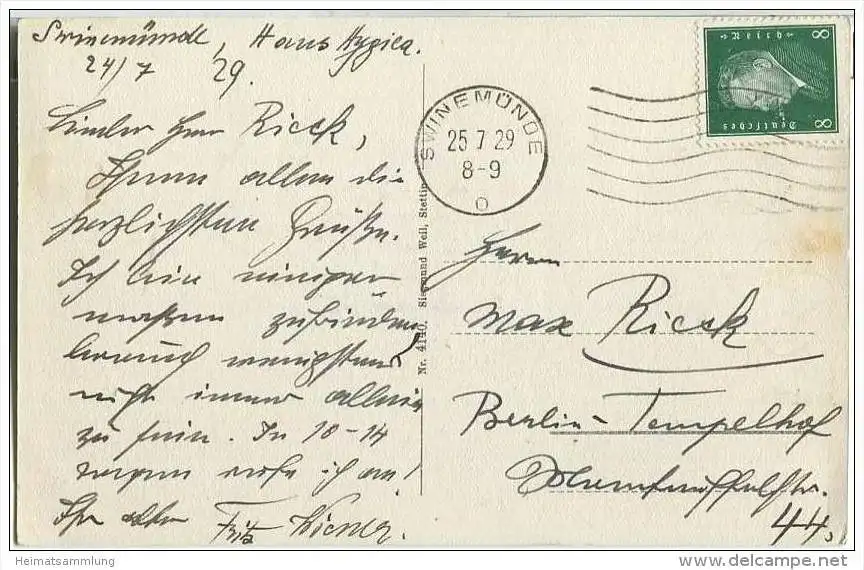 Swinemünde, Haus Hygiea.
24/7 29.
Lieber Herr Rieck,
Ihnen allen die
herzlichsten Grüße.
Ich bin einiger
maßen zufrieden
brauch wenigstens
nicht immer allein
zu sein. In 10-14
Tagen rufe ich an!
Ihr alter Fritz Wiener.
Nr. 4140. Siegmund Weil, Stettin
SWINEMÜNDE
25 7 29
8-9
o
8 8
Deutsches
Reich
Herrn
Max Rieck
Berlin-Tempelhof
44,
Heimatsammlung
www.delcampe.net